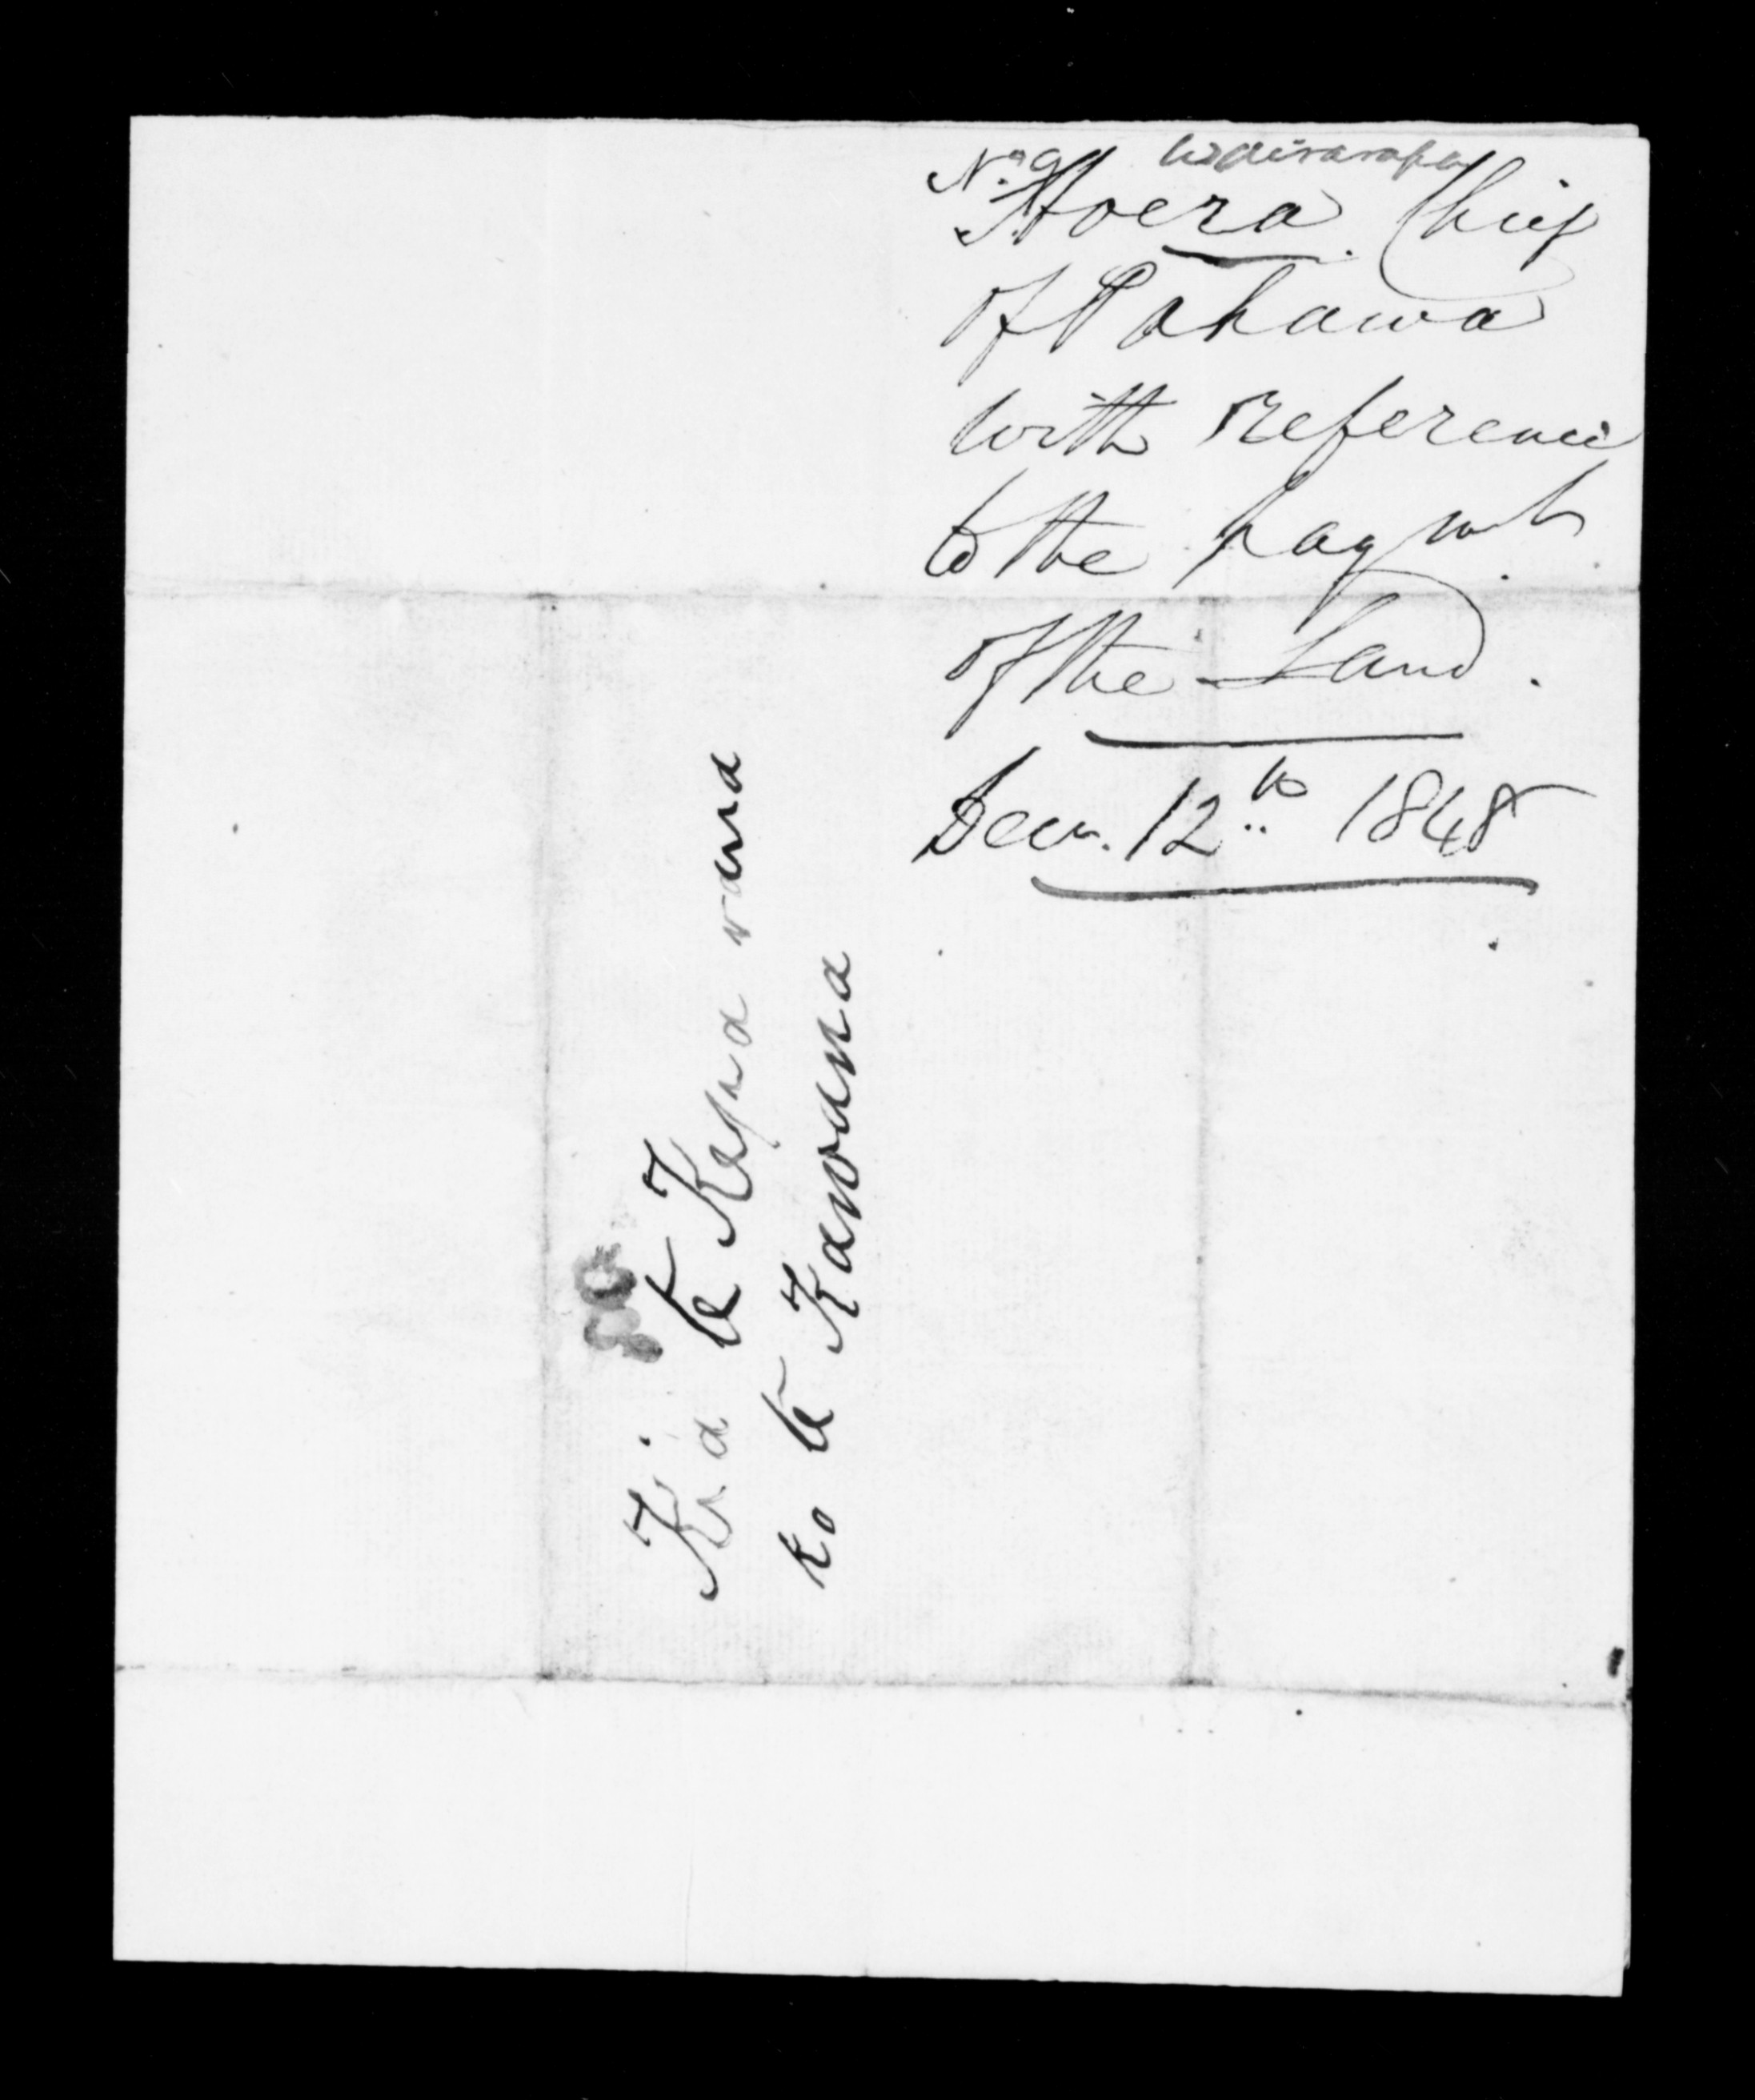 No. 9 Wairarapa
Hoera Chief
of Pahawa
with reference
to the paymt.
of the Land.
Decr. 12th 1848
Kia te Kapa rana
ko te Kawana